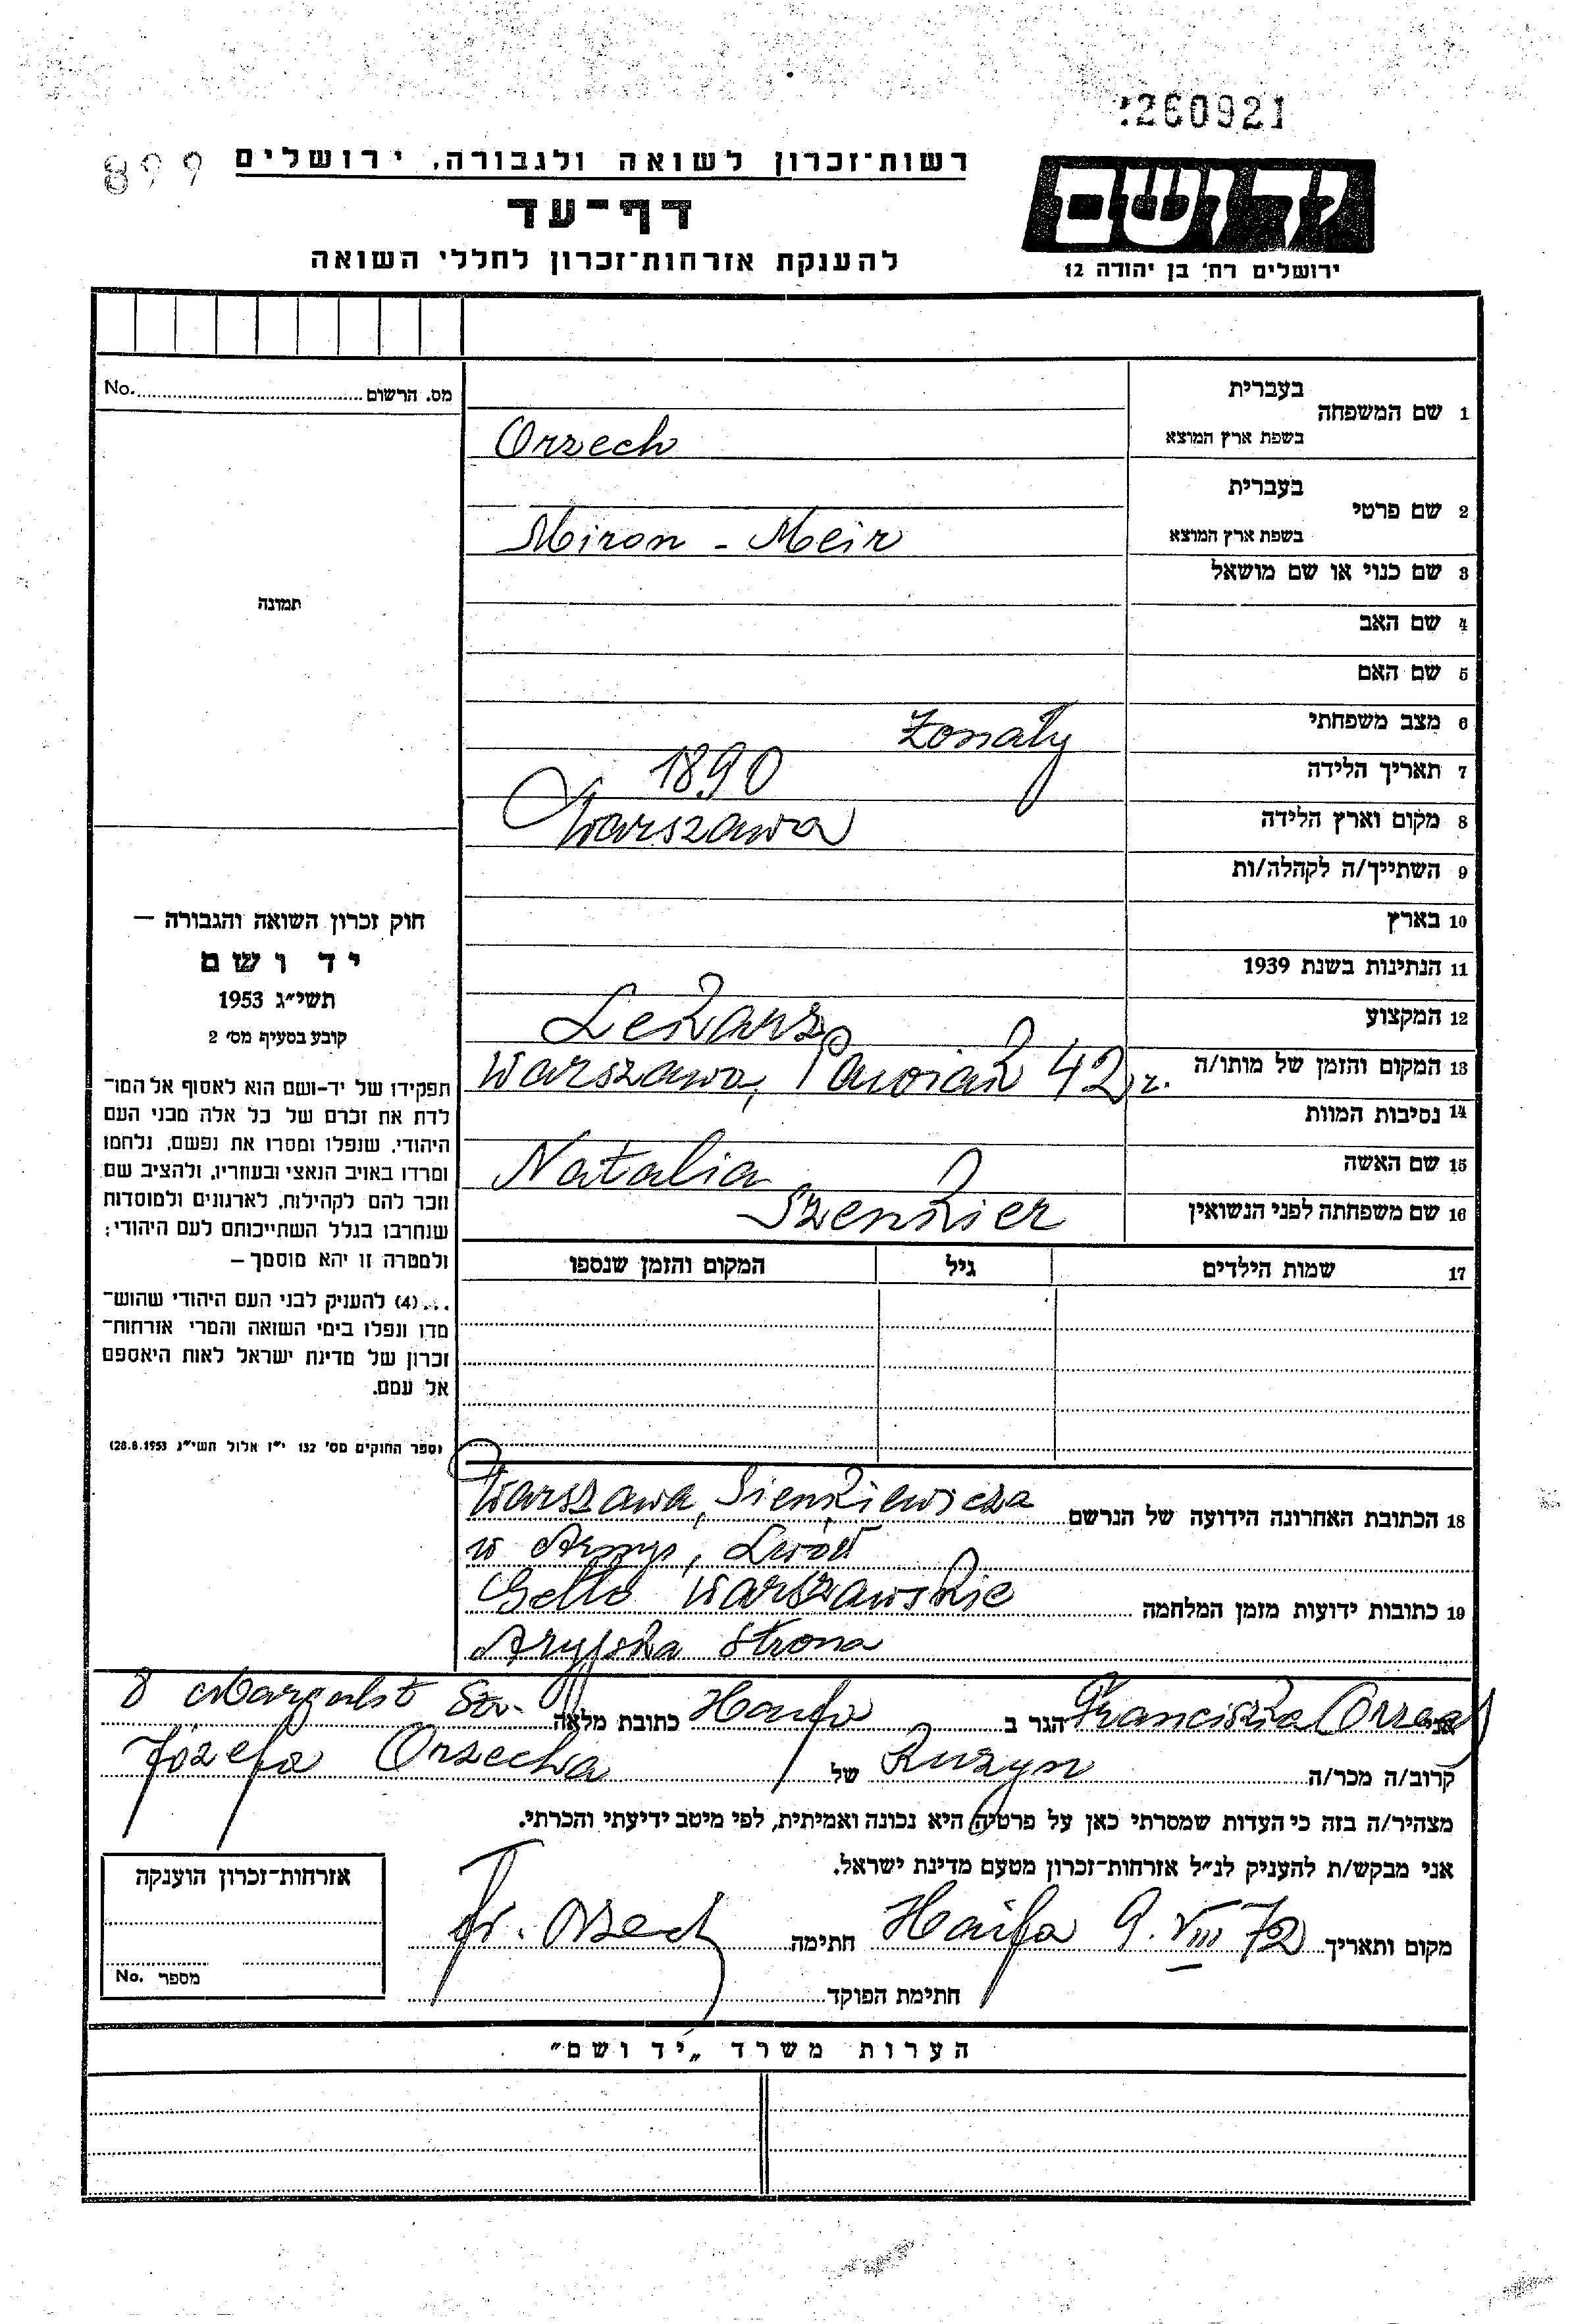 260921
899
רשות־זכרון לשואה ולגבורה, ירושלים
דף־עד
להענקת אזרחות־זכרון לחללי השואה
יד ושם
ירושלים רח' בן יהודה 12
מס. הרשום No.
1 שם המשפחה
בעברית
בשפת ארץ המוצא Orzech
2 שם פרטי
בעברית
בשפת ארץ המוצא Miron - Meir
תמונה
3 שם כנוי או שם מושאל
4 שם האב
5 שם האם
6 מצב משפחתי Żonaty
7 תאריך הלידה 1890
8 מקום וארץ הלידה Warszawa
9 השתייך/ה לקהלה/ות
10 בארץ
11 הנתינות בשנת 1939
12 המקצוע Lekarz
13 המקום והזמן של מותו/ה Warszawa, Pawiak 42 r.
14 נסיבות המוות
15 שם האשה Natalia
16 שם משפחתה לפני הנשואין Szenkier
17 שמות הילדים גיל המקום והזמן שנספו
חוק זכרון השואה והגבורה —
יד ושם
תשי"ג 1953
קובע בסעיף מס' 2
תפקידו של יד-ושם הוא לאסוף אל המו־
לדת את זכרם של כל אלה מבני העם
היהודי, שנפלו ומסרו את נפשם, נלחמו
ומרדו באויב הנאצי ובעוזריו, ולהציב שם
וזכר להם לקהילות, לארגונים ולמוסדות
שנחרבו בגלל השתייכותם לעם היהודי;
ולמטרה זו יהא מוסמך —
...(4) להעניק לבני העם היהודי שהוש־
מדו ונפלו בימי השואה והמרי אזרחות־
זכרון של מדינת ישראל לאות היאספם
אל עמם.
(ספר החוקים מס' 132 י"ז אלול תשי"ג 28.8.1953)
18 הכתובת האחרונה הידועה של הנרשם Warszawa, Sienkiewicza
Lwów
19 כתובות ידועות מזמן המלחמה Getto Warszawskie
Aryjska strona
אני Franciszka Orzech הגר ב Haifa כתובת מלאה 8
קרוב/ה מכר/ה Kuzyn של Józefa Orzecha
מצהיר/ה בזה כי העדות שמסרתי כאן על פרטיה היא נכונה ואמיתית, לפי מיטב ידיעתי והכרתי.
אני מבקש/ת להעניק לנ"ל אזרחות־זכרון מטעם מדינת ישראל.
מקום ותאריך Haifa 9. VIII 72 חתימה Fr. Orzech
חתימת הפוקד
אזרחות־זכרון הוענקה
מספר No.
הערות משרד „יד ושם"